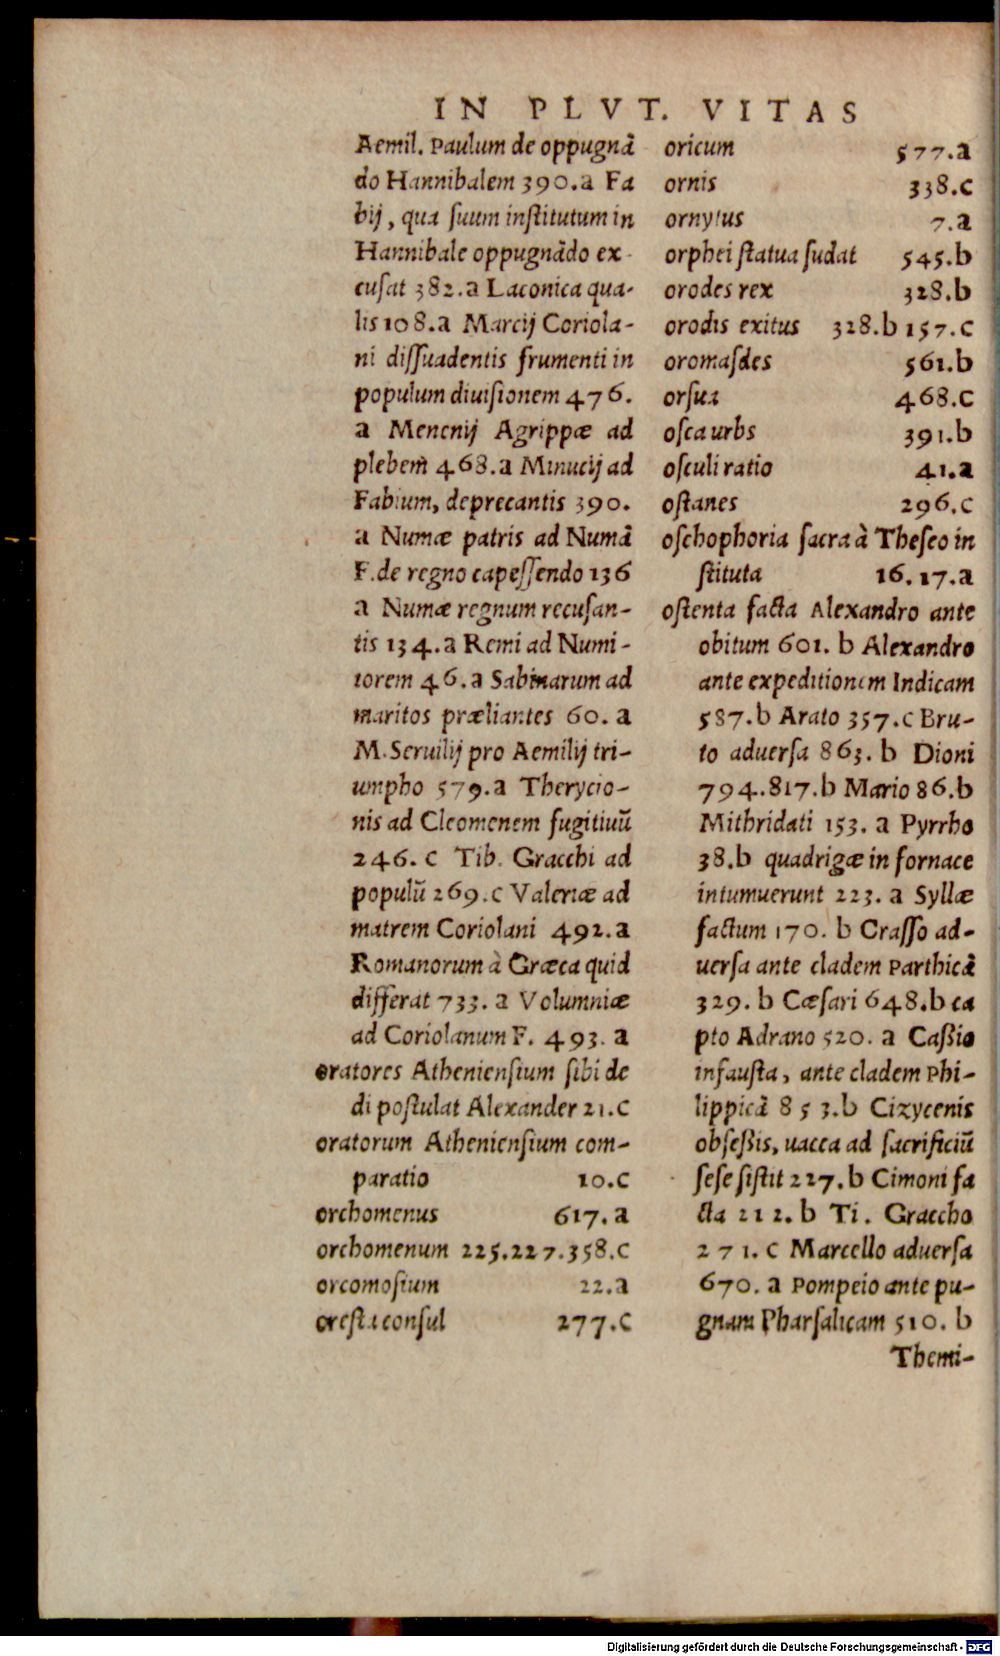 IN PLVT. VITAS
Aemil. Paulum de oppugnã
do Hannibalem 390.a Fa
bij, qua suum institutum in
Hannibale oppugnãdo ex-
cusat 382.a Laconica qua-
lis 108.a Marcij Coriola-
ni dissuadentis frumenti in
populum diuisionem 476.
a Menenij Agrippæ ad
plebem 468.a Minucij ad
Fabium, deprecantis 390.
a Numæ patris ad Numã
F.de regno capessendo 136
a Numæ regnum recusan-
tis 134.a Remi ad Numi-
torem 46.a Sabinarum ad
maritos præliantes 60. a
M.Seruilij pro Aemilij tri-
umpho 579.a Therycio-
nis ad Cleomenem fugitiuũ
246. c Tib. Gracchi ad
populũ 269.c Valeriæ ad
matrem Coriolani 492.a
Romanorum à Græca quid
differat 733. a Volumniæ
ad Coriolanum F. 493. a
oratores Atheniensium sibi de
di postulat Alexander 21.c
oratorum Atheniensium com-
paratio 10.c
orchomenus 617.a
orchomenum 225.227.358.c
orcomosium 22.a
oresta consul 277.c
oricum 577.a
ornis 338.c
ornytus 7.a
orphei statua sudat 545.b
orodes rex 328.b
orodis exitus 328.b 157.c
oromasdes 561.b
orsua 468.c
osca urbs 391.b
osculi ratio 41.a
ostanes 296.c
oschophoria sacra à Theseo in
stituta 16.17.a
ostenta facta Alexandro ante
obitum 601. b Alexandro
ante expeditionem Indicam
587.b Arato 357.c Bru-
to aduersa 863. b Dioni
794.817.b Mario 86.b
Mithridati 153. a Pyrrho
38.b quadrigæ in fornace
intumuerunt 223. a Syllæ
factum 170. b Crasso ad-
uersa ante cladem Parthicã
329. b Cæsari 648.b ca
pto Adrano 520. a Caßio
infausta, ante cladem Phi-
lippicã 853.b Cizycenis
obseßis, uacca ad sacrificiũ
sese sistit 227.b Cimoni fa
cta 212.b Ti. Graccho
271.c Marcello aduersa
670. a Pompeio ante pu-
gnam Pharsalicam 510. b
Themi-
Digitalisierung gefördert durch die Deutsche Forschungsgemeinschaft - DFG